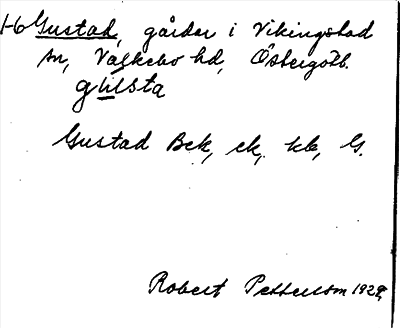 1-6 Gustad, gårdar i Vikingstad
sn, Valkebo hd, Östergötl.
gusta
Gustad Bek, ek, kk, G.
Robert Pettersson 1929